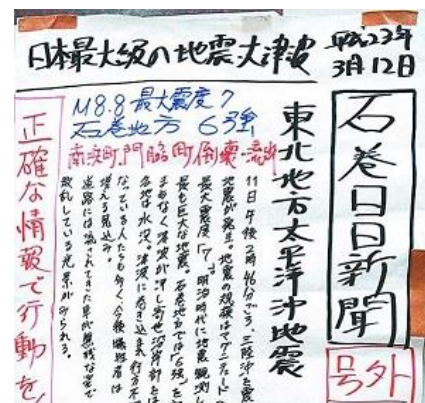 日本最大級の地震・大津波
平成23年
3月12日
石巻日日新聞
号外
東北地方太平洋沖地震
M8.8 最大震度7
石巻地方 6強
南浜町、門脇町倒壊・流出
11日午後2時46分ごろ、三陸沖を震
地震が発生。地震の規模はマグニチュードへ
最大震度「7」。明治時代に地震観測し
最も巨大な地震。石巻地方では「6強」を
まもなく津波が押し寄せ沿岸部は
各地は水没。津波に巻き込まれ行方不
なっている人たちも多く、今後犠牲者は
増える見込み
道路には流されてきた車が無残な姿で
散乱している光景がみられる。
正確な情報で行動を